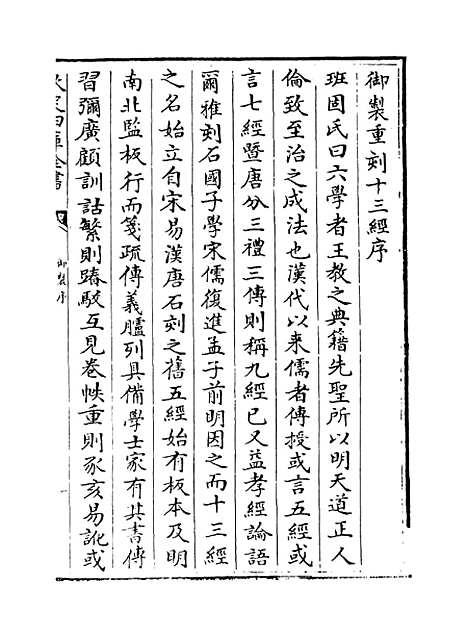 御製重刻十三經序
班固氏曰六學者王教之典籍先聖所以明天道正人
倫致至治之成法也漢代以来儒者傳授或言五經或
言七經暨唐分三禮三傳則稱九經已又益孝經論語
爾雅刻石國子學宋儒復進孟子前明因之而十三經
之名始立自宋易漢唐石刻之舊五經始有板本及明
南北監板行而箋疏傳義臚列具備學士家有其書傳
習彌廣顧訓詁繁則踳駁互見卷帙重則豕亥易訛或
欽定四庫全書
御製序